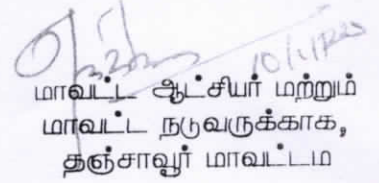 மாவட்ட ஆட்சியர் மற்றும்
மாவட்ட நடுவருக்காக,
தஞ்சாவூர் மாவட்டம